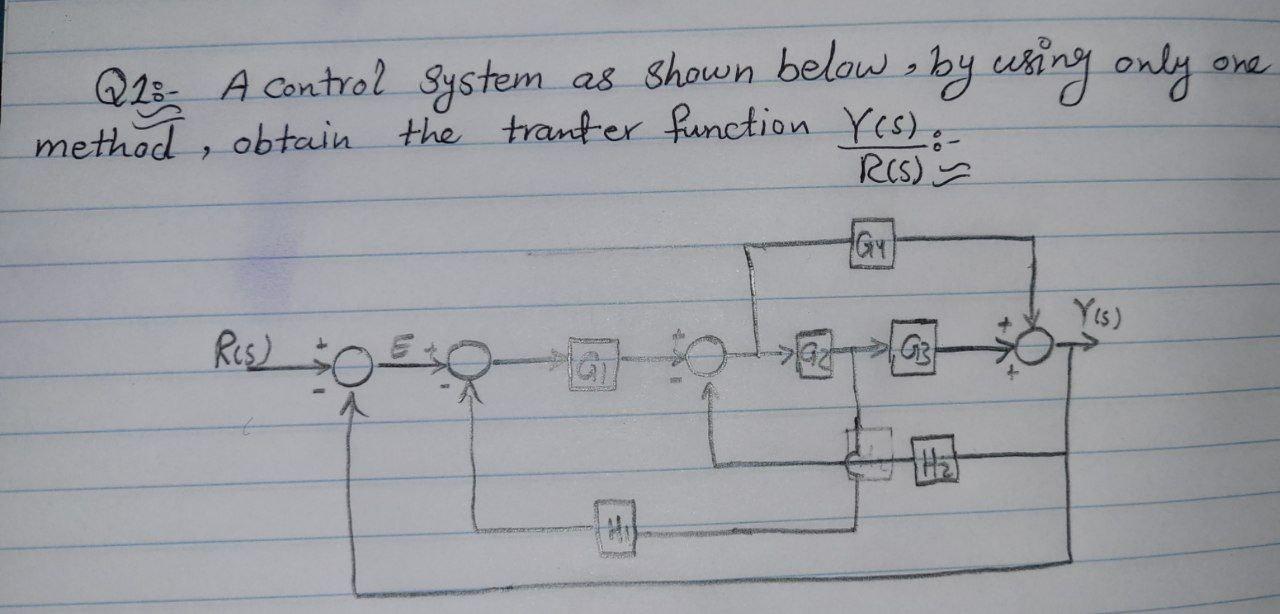 Q1:- A control system as shown below, by using only one
method, obtain the tranfer function Y(s)/R(s) :-
G4
R(s) + - E + - G1 + - G2 G3 + + Y(s)
H2
H1